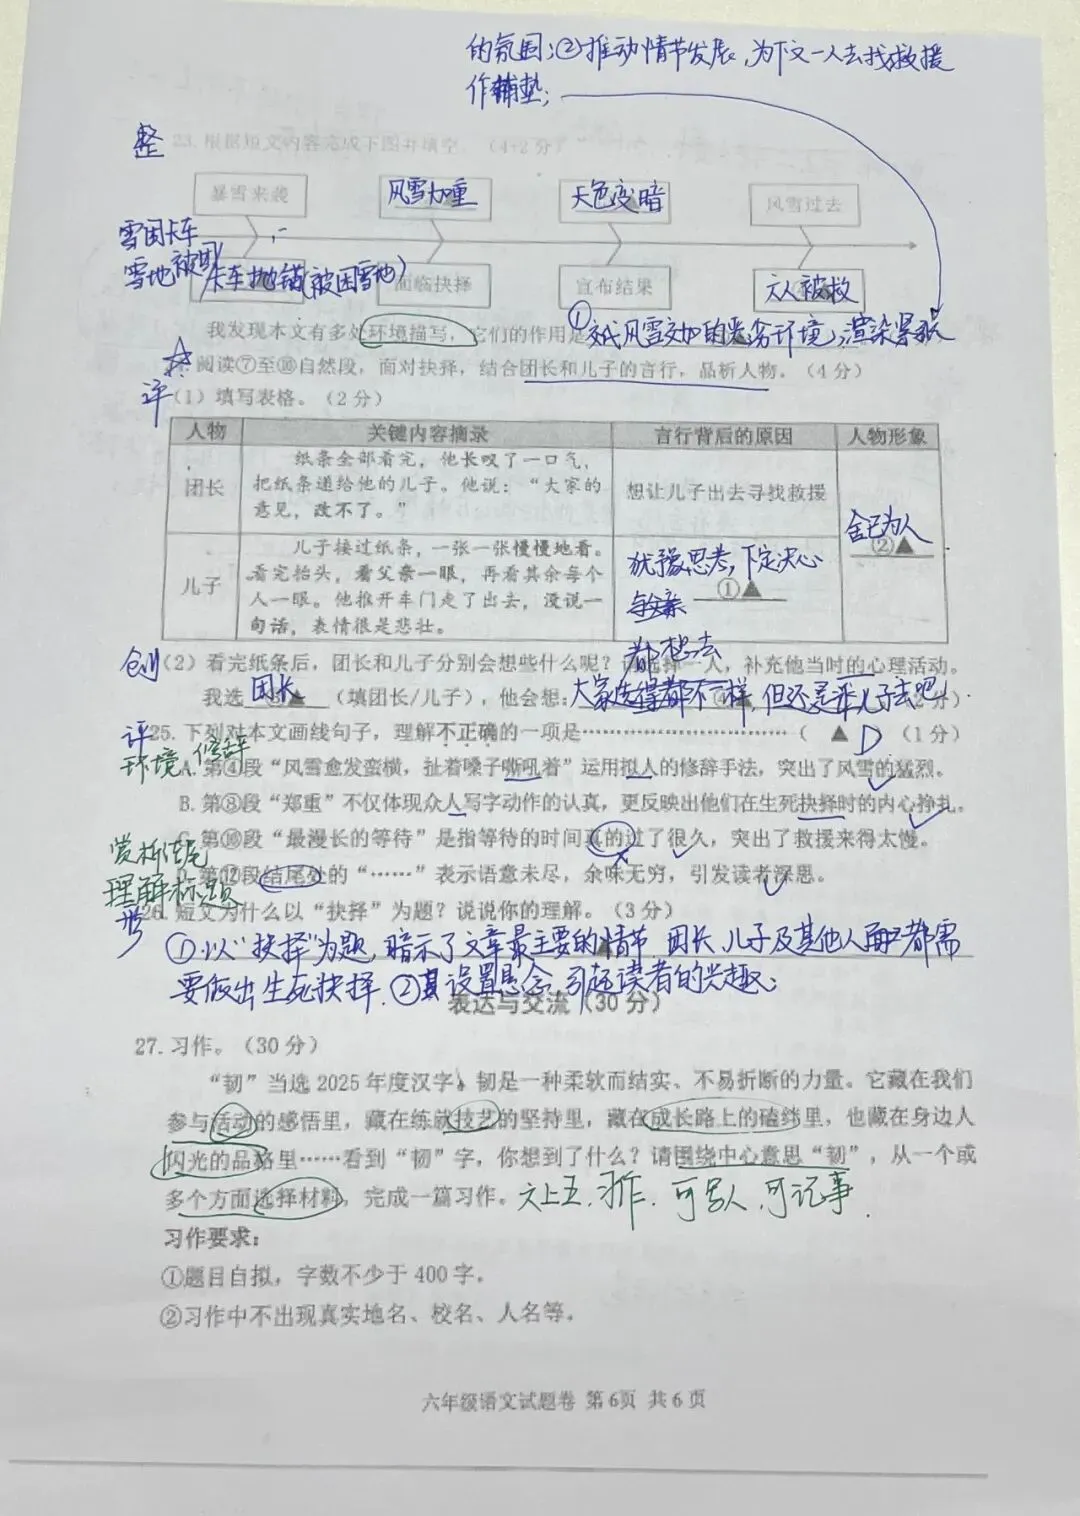 的氛围;②推动情节发展,为下文一人去找救援
作铺垫;
整
23.根据短文内容完成下图并填空。(4+2分)
暴雪来袭 风雪加重 天色变暗 风雪过去
雪困卡车
雪地被困
卡车抛锚(被困雪地) 面临抉择 宣布结果 六人被救
我发现本文有多处环境描写,它们的作用是①交代风雪交加的恶劣环境,渲染紧张
阅读⑦至⑩自然段,面对抉择,结合团长和儿子的言行,品析人物。(4分)
评
(1)填写表格。(2分)
人物 关键内容摘录 言行背后的原因 人物形象
团长 纸条全部看完,他长叹了一口气,
把纸条递给他的儿子。他说:“大家的
意见,改不了。”
想让儿子出去寻找救援
舍己为人
②▲
儿子 儿子接过纸条,一张一张慢慢地看。
看完抬头,看父亲一眼,再看其余每个
人一眼。他推开车门走了出去,没说一
句话,表情很是悲壮。
犹豫思考,下定决心
①▲
都想去
创
(2)看完纸条后,团长和儿子分别会想些什么呢?请选择一人,补充他当时的心理活动。
我选 团长 ▲ (填团长/儿子),他会想:大家选得都不一样,但还是乖儿子去吧 (2分)
评
25.下列对本文画线句子,理解不正确的一项是……………………………( ▲ D )(1分)
环境 修辞
A.第④段“风雪愈发蛮横,扯着嗓子嘶吼着”运用拟人的修辞手法,突出了风雪的猛烈。
B.第⑧段“郑重”不仅体现众人写字动作的认真,更反映出他们在生死抉择时的内心挣扎。
C.第⑩段“最漫长的等待”是指等待的时间真的过了很久,突出了救援来得太慢。
赏析结尾
D.第⑫段结尾处的“……”表示语意未尽,余味无穷,引发读者深思。
理解标题
26.短文为什么以“抉择”为题?说说你的理解。(3分)
①以“抉择”为题,暗示了文章最主要的情节,团长、儿子及其他人都需
要做出生死抉择.②设置悬念,引起读者的兴趣;
表达与交流(30分)
27.习作。(30分)
“韧”当选2025年度汉字,韧是一种柔软而结实、不易折断的力量。它藏在我们
参与活动的感悟里,藏在练就技艺的坚持里,藏在成长路上的磕绊里,也藏在身边人
闪光的品格里……看到“韧”字,你想到了什么?请围绕中心意思“韧”,从一个或
多个方面选择材料,完成一篇习作。六上五.习作.可写人.可记事.
习作要求:
①题目自拟,字数不少于400字。
②习作中不出现真实地名、校名、人名等。
六年级语文试题卷 第6页 共6页